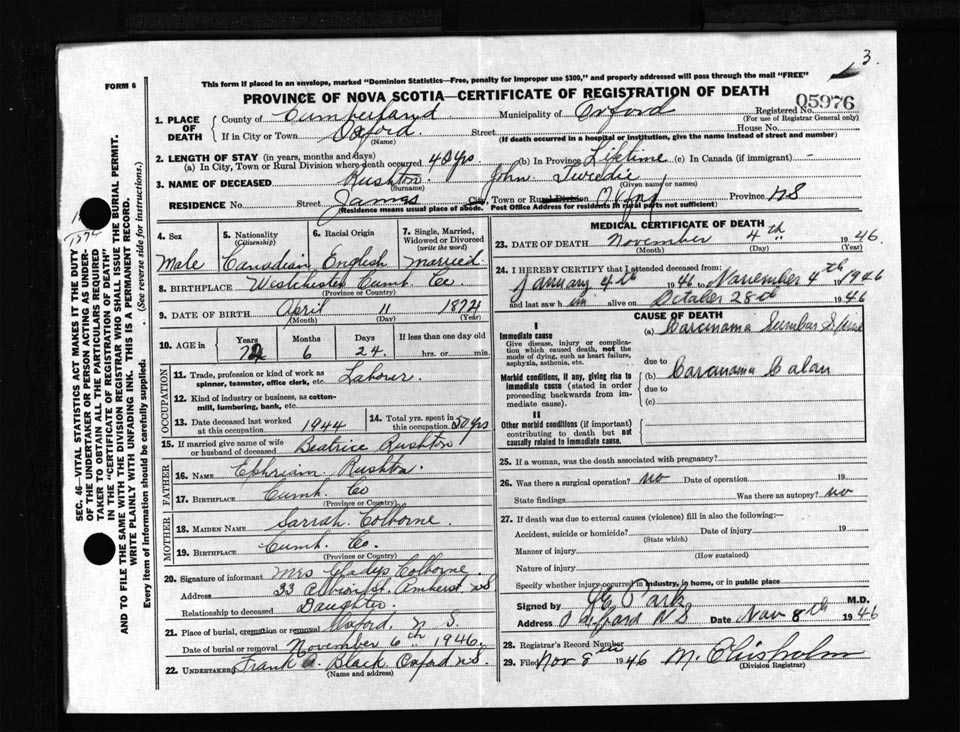 3.
This form if placed in an envelope, marked "Dominion Statistics—Free, penalty for improper use $300," and properly addressed will pass through the mail "FREE"
FORM 6
PROVINCE OF NOVA SCOTIA—CERTIFICATE OF REGISTRATION OF DEATH
05976
1. PLACE OF DEATH { County of Cumberland Municipality of Oxford Registered No.
(For use of Registrar General only)
If in City or Town Oxford. Street House No.
(Name) (If death occurred in a hospital or institution, give the name instead of street and number)
2. LENGTH OF STAY (in years, months and days)
(a) In City, Town or Rural Division where death occurred 40 yrs. (b) In Province Lifetime (c) In Canada (if immigrant) -
3. NAME OF DECEASED Rushton John Twedie
(Surname) (Given name or names)
RESIDENCE No. Street James City, Town or Rural Division Province NS
(Residence means usual place of abode. Post Office Address for residents in rural parts not sufficient)
4. Sex
5. Nationality (Citizenship)
6. Racial Origin
7. Single, Married, Widowed or Divorced (write the word)
Male Canadian English married
8. BIRTHPLACE Westchester Cumb. Co
(Province or Country)
9. DATE OF BIRTH April 11 1872
(Month) (Day) (Year)
10. AGE in Years Months Days If less than one day old
6 24. hrs. or min.
OCCUPATION
11. Trade, profession or kind of work as spinner, teamster, office clerk, etc. Laborer.
12. Kind of industry or business, as cotton-mill, lumbering, bank, etc.
13. Date deceased last worked at this occupation 1944
14. Total yrs. spent in this occupation 50 yrs
15. If married give name of wife or husband of deceased Beatrice Rushton
FATHER
16. NAME Ephriam Rushton.
17. BIRTHPLACE Cumb. Co
(Province or Country)
MOTHER
18. MAIDEN NAME Sarrah. Colborne.
19. BIRTHPLACE Cumb. Co.
(Province or Country)
20. Signature of informant Mrs Gladys Colborne.
Address 33 Albion St. Amherst NS
Relationship to deceased Daughter.
21. Place of burial, cremation or removal Oxford, N. S.
Date of burial or removal November 6th 1946.
22. UNDERTAKER Frank A. Black Oxford NS.
(Name and address)
MEDICAL CERTIFICATE OF DEATH
23. DATE OF DEATH November 4th 1946.
(Month) (Day) (Year)
24. I HEREBY CERTIFY that I attended deceased from:
January 4th 1946 to November 4th 1946
and last saw him alive on October 28d 1946
CAUSE OF DEATH
I
Immediate cause
Give disease, injury or complication which caused death, not the mode of dying, such as heart failure, asphyxia, asthenia, etc.
(a) Carcinoma Lumbar Spine
due to
Morbid conditions, if any, giving rise to immediate cause (stated in order proceeding backwards from immediate cause).
(b) Carcinoma Colon
due to
(c)
II
Other morbid conditions (if important) contributing to death but not causally related to immediate cause.
25. If a woman, was the death associated with pregnancy?
26. Was there a surgical operation? no Date of operation 19
State findings Was there an autopsy? no
27. If death was due to external causes (violence) fill in also the following:—
Accident, suicide or homicide? Date of injury 19
(State which)
Manner of injury
(How sustained)
Nature of injury
Specify whether injury occurred in industry, in home, or in public place
Signed by Park M.D.
Address Oxford NS Date Nov 8th 1946
28. Registrar's Record Number
29. Filed Nov 8th 1946 M. Chisholm
(Division Registrar)
SEC. 46—VITAL STATISTICS ACT MAKES IT THE DUTY
OF THE UNDERTAKER OR PERSON ACTING AS UNDERTAKER TO OBTAIN ALL THE PARTICULARS REQUIRED
IN THE "CERTIFICATE OF REGISTRATION OF DEATH"
AND TO FILE THE SAME WITH THE DIVISION REGISTRAR WHO SHALL ISSUE THE BURIAL PERMIT.
WRITE PLAINLY WITH UNFADING INK. THIS IS A PERMANENT RECORD.
Every item of information should be carefully supplied. (See reverse side for instructions.)